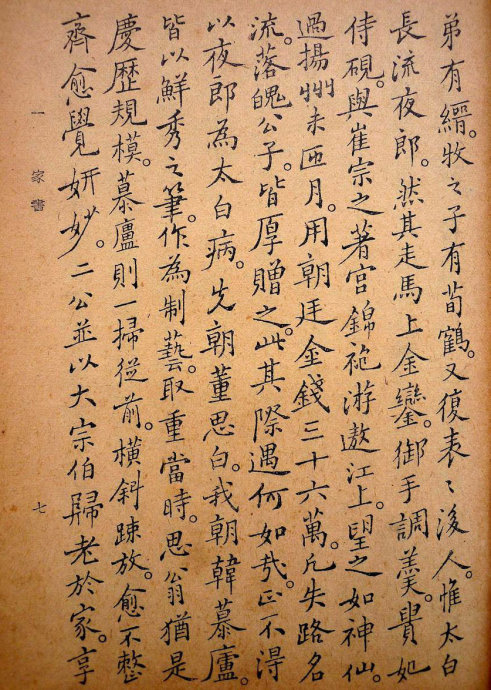 弟有縉。牧之子有荀鶴。又復表〻後人。惟太白
長流夜郎。然其走馬上金鑾。御手調羹。貴妃
侍硯。與崔宗之著宮錦袍游遨江上。望之如神仙。
過揚州未匝月。用朝廷金錢三十六萬。凡失路名
流。落魄公子。皆厚贈之。此其際遇何如哉。正不得
以夜郎為太白病。先朝董思白。我朝韓慕廬。
皆以鮮秀之筆。作為制藝。取重當時。思翁猶是
慶歷規模。慕廬則一掃從前。橫斜疎放。愈不整
齊。愈覺妍妙。二公並以大宗伯歸老於家。享
一 家書 七